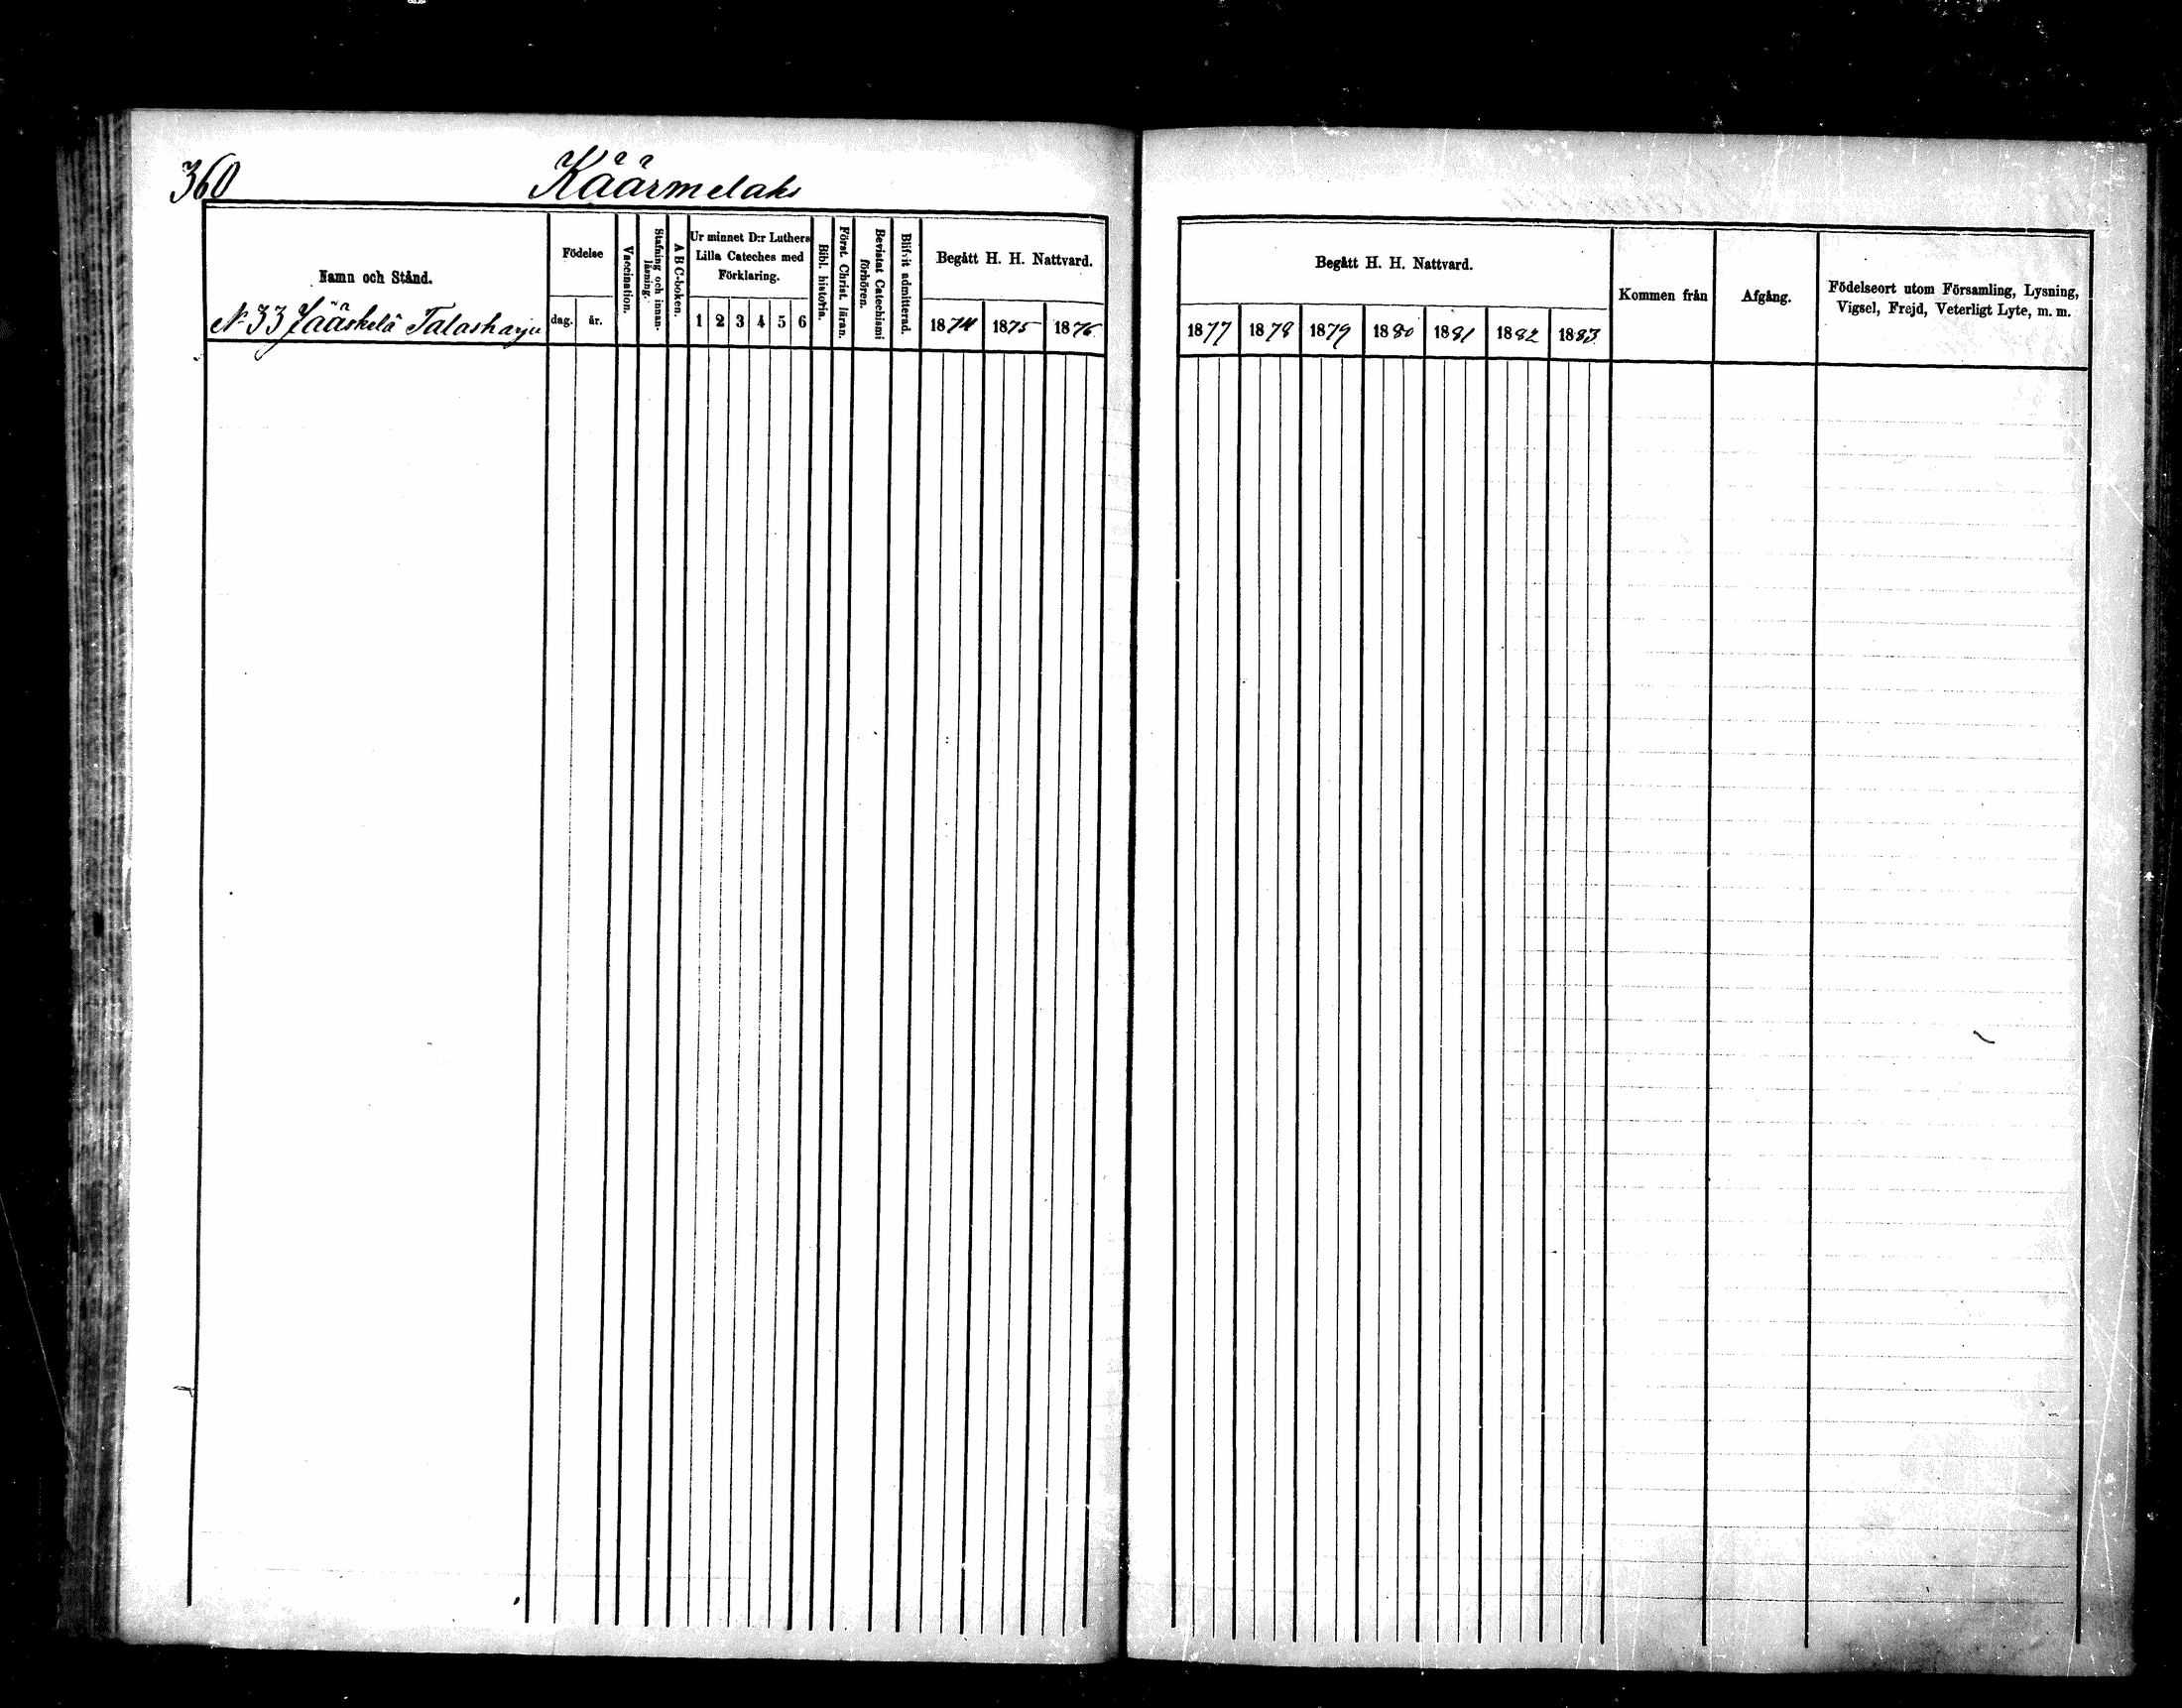 360 Käärmelaks
Namn och Stånd.
N: 33 Jääskelä Talasharju
Födelse
dag. år.
Vaccination.
Stafning och innan-
läsning.
A B C-boken.
Ur minnet D:r Luthers
Lilla Cateches med
Förklaring.
1 2 3 4 5 6
Bibl. historia.
Först. Christ. läran.
Bevistat Catechismi
förhören.
Blifvit admitterad.
Begått H. H. Nattvard.
1874 1875 1876
Begått H. H. Nattvard.
1877 1878 1879 1880 1881 1882 1883
Kommen från
Afgång.
Födelseort utom Församling, Lysning,
Vigsel, Frejd, Veterligt Lyte, m. m.